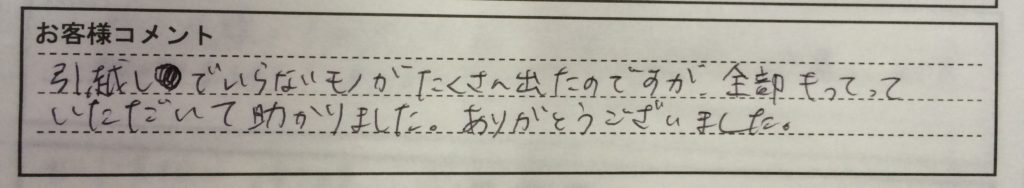 お客様コメント
引越しでいらないモノがたくさん出たのですが、全部もってって
いただいて助かりました。ありがとうございました。